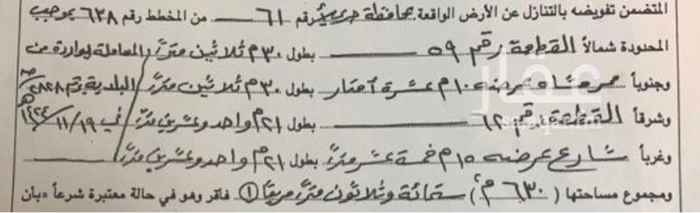 المتضمن تفويضه بالتنازل عن الأرض الواقعة بمحافظة رقم ٦١ من المخطط رقم ٦٣٨ بموجب
المحدودة شمالاً القطعة رقم ٥٩ بطول ٣٠م ثلاثين متراً المعاملة الواردة من
وجنوباً ممر مشاه عرضه ١٠م عشرة أمتار بطول ٣٠م ثلاثين متراً البلدية برقم
وشرقاً القطعة رقم ٦٢ بطول ٢١م واحد وعشرين متراً في ١٩/١١/
وغرباً شارع عرضه ١٥م خمسة عشر متراً بطول ٢١م واحد وعشرين متراً
ومجموع مساحتها (٦٣٠م٢) ستمائة وثلاثون متراً مربعاً ① فأقر وهو في حالة معتبرة شرعاً «بأن
عقار